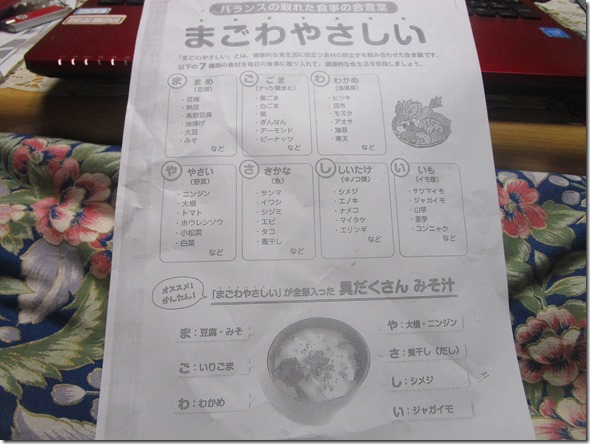 バランスの取れた食事の合言葉
まごわやさしい
「まごわやさしい」とは、健康的な食生活に役立つ食材の頭文字を組み合わせた合言葉です。
以下の7種類の食材を毎日の食事に取り入れて、健康的な食生活を目指しましょう。
ま まめ
(豆類)
・豆腐
・納豆
・高野豆腐
・油揚げ
・大豆
・みそ
など
ご ごま
(ナッツ類含む)
・黒ごま
・白ごま
・栗
・ぎんなん
・アーモンド
・ピーナッツ
など
わ わかめ
(海藻類)
・ヒジキ
・昆布
・モズク
・アオサ
・海苔
・寒天
など
や やさい
(野菜)
・ニンジン
・大根
・トマト
・ホウレンソウ
・小松菜
・白菜
など
さ さかな
(魚)
・サンマ
・イワシ
・シジミ
・エビ
・タコ
・煮干し
など
し しいたけ
(キノコ類)
・シメジ
・エノキ
・ナメコ
・マイタケ
・エリンギ
など
い いも
(イモ類)
・サツマイモ
・ジャガイモ
・山芋
・里芋
・コンニャク
など
オススメ!
かんたん!
「まごわやさしい」が全部入った 具だくさん みそ汁
ま:豆腐・みそ
ご:いりごま
わ:わかめ
や:大根・ニンジン
さ:煮干し(だし)
し:シメジ
い:ジャガイモ